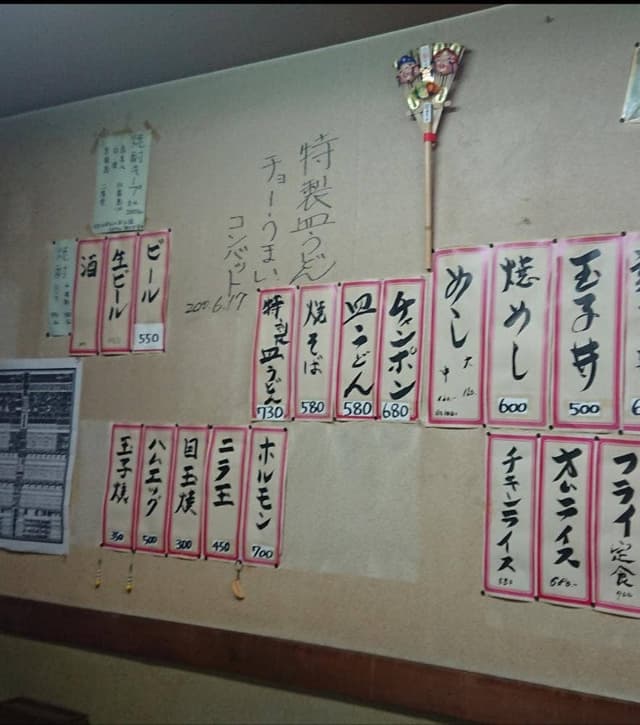 特製皿うどん
チョーうまい
コンバット
焼酎キープ
ビール
550
生ビール
酒
玉子丼
500
焼めし
600
めし
大
中
チャンポン
680
皿うどん
580
焼そば
580
特製皿うどん
730
ホルモン
700
ニラ玉
450
目玉焼
300
ハムエッグ
500
玉子焼
350
フライ定食
オムライス
チキンライス